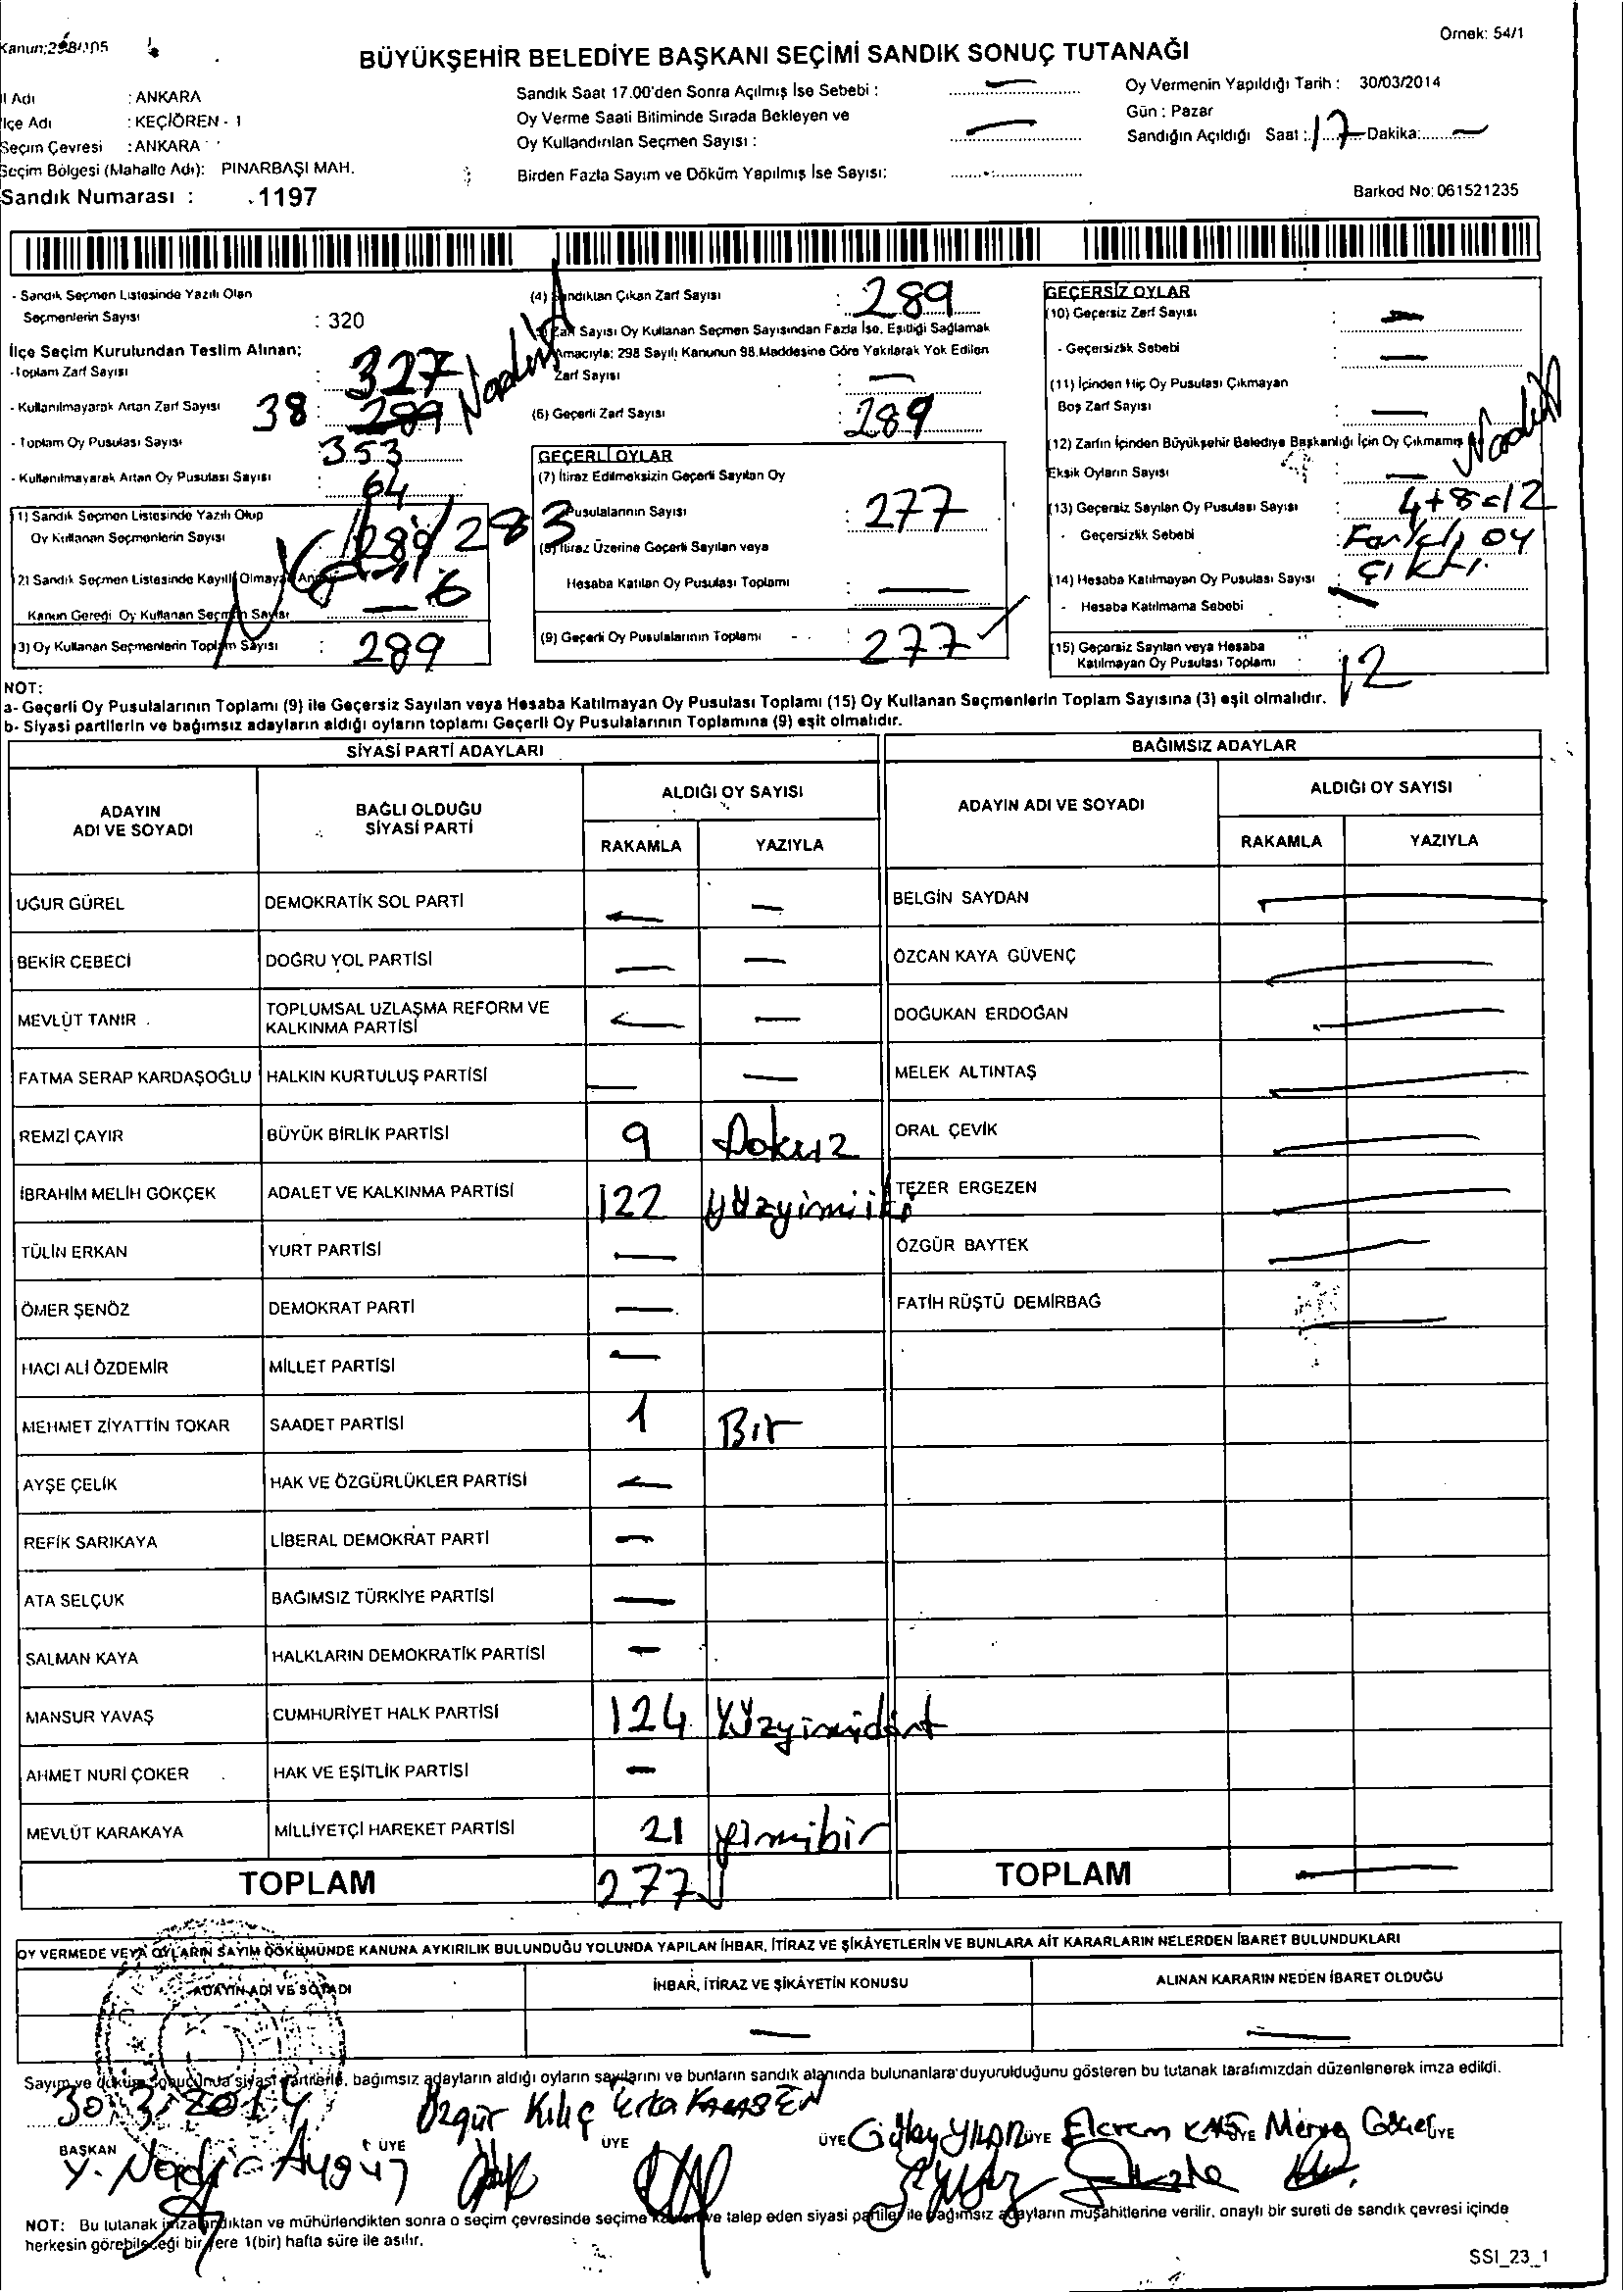 Kanun:298/105
Örnek: 54/1
BÜYÜKŞEHİR BELEDİYE BAŞKANI SEÇİMİ SANDIK SONUÇ TUTANAĞI
İl Adı : ANKARA
İlçe Adı : KEÇİÖREN - 1
Seçim Çevresi : ANKARA
Seçim Bölgesi (Mahalle Adı): PINARBAŞI MAH.
Sandık Numarası : 1197
Sandık Saat 17.00'den Sonra Açılmış İse Sebebi : —
Oy Verme Saati Bitiminde Sırada Bekleyen ve
Oy Kullandırılan Seçmen Sayısı : —
Birden Fazla Sayım ve Döküm Yapılmış İse Sayısı:
Oy Vermenin Yapıldığı Tarih : 30/03/2014
Gün : Pazar
Sandığın Açıldığı Saat : 17 Dakika: —
Barkod No: 061521235
- Sandık Seçmen Listesinde Yazılı Olan
Seçmenlerin Sayısı : 320
İlçe Seçim Kurulundan Teslim Alınan;
- Toplam Zarf Sayısı : 327
- Kullanılmayarak Artan Zarf Sayısı 38 : 289
- Toplam Oy Pusulası Sayısı : 353
- Kullanılmayarak Artan Oy Pusulası Sayısı : 64
(1) Sandık Seçmen Listesinde Yazılı Olup
Oy Kullanan Seçmenlerin Sayısı 283
(2) Sandık Seçmen Listesinde Kayıtlı Olmayan Ancak
Kanun Gereği Oy Kullanan Seçmen Sayısı — 6
(3) Oy Kullanan Seçmenlerin Toplam Sayısı : 289
(4) Sandıktan Çıkan Zarf Sayısı : 289
(5) Zarf Sayısı Oy Kullanan Seçmen Sayısından Fazla İse, Eşitliği Sağlamak
Amacıyla; 298 Sayılı Kanunun 98.Maddesine Göre Yakılarak Yok Edilen
Zarf Sayısı : —
(6) Geçerli Zarf Sayısı : 289
GEÇERLİ OYLAR
(7) İtiraz Edilmeksizin Geçerli Sayılan Oy
Pusulalarının Sayısı : 277
(8) İtiraz Üzerine Geçerli Sayılan veya
Hesaba Katılan Oy Pusulası Toplamı : —
(9) Geçerli Oy Pusulalarının Toplamı : 277
GEÇERSİZ OYLAR
(10) Geçersiz Zarf Sayısı : —
- Geçersizlik Sebebi : —
(11) İçinden Hiç Oy Pusulası Çıkmayan
Boş Zarf Sayısı : —
(12) Zarfın İçinden Büyükşehir Belediye Başkanlığı İçin Oy Çıkmamış
Eksik Oyların Sayısı : —
(13) Geçersiz Sayılan Oy Pusulası Sayısı : 4+8=12
- Geçersizlik Sebebi : Farklı oy
çıktı.
(14) Hesaba Katılmayan Oy Pusulası Sayısı : —
- Hesaba Katılmama Sebebi :
(15) Geçersiz Sayılan veya Hesaba
Katılmayan Oy Pusulası Toplamı : 12
NOT:
a- Geçerli Oy Pusulalarının Toplamı (9) ile Geçersiz Sayılan veya Hesaba Katılmayan Oy Pusulası Toplamı (15) Oy Kullanan Seçmenlerin Toplam Sayısına (3) eşit olmalıdır.
b- Siyasi partilerin ve bağımsız adayların aldığı oyların toplamı Geçerli Oy Pusulalarının Toplamına (9) eşit olmalıdır.
SİYASİ PARTİ ADAYLARI
ADAYIN ADI VE SOYADI BAĞLI OLDUĞU SİYASİ PARTİ ALDIĞI OY SAYISI
RAKAMLA YAZIYLA
UĞUR GÜREL DEMOKRATİK SOL PARTİ — —
BEKİR CEBECİ DOĞRU YOL PARTİSİ — —
MEVLÜT TANIR TOPLUMSAL UZLAŞMA REFORM VE KALKINMA PARTİSİ — —
FATMA SERAP KARDAŞOĞLU HALKIN KURTULUŞ PARTİSİ — —
REMZİ ÇAYIR BÜYÜK BİRLİK PARTİSİ 9 Dokuz
İBRAHİM MELİH GÖKÇEK ADALET VE KALKINMA PARTİSİ 122 Yüzyirmiiki
TÜLİN ERKAN YURT PARTİSİ —
ÖMER ŞENÖZ DEMOKRAT PARTİ —
HACI ALİ ÖZDEMİR MİLLET PARTİSİ —
MEHMET ZİYATTİN TOKAR SAADET PARTİSİ 1 Bir
AYŞE ÇELİK HAK VE ÖZGÜRLÜKLER PARTİSİ —
REFİK SARIKAYA LİBERAL DEMOKRAT PARTİ —
ATA SELÇUK BAĞIMSIZ TÜRKİYE PARTİSİ —
SALMAN KAYA HALKLARIN DEMOKRATİK PARTİSİ —
MANSUR YAVAŞ CUMHURİYET HALK PARTİSİ 124 Yüzyirmidört
AHMET NURİ ÇOKER HAK VE EŞİTLİK PARTİSİ —
MEVLÜT KARAKAYA MİLLİYETÇİ HAREKET PARTİSİ 21 yirmibir
TOPLAM 277
BAĞIMSIZ ADAYLAR
ADAYIN ADI VE SOYADI ALDIĞI OY SAYISI
RAKAMLA YAZIYLA
BELGİN SAYDAN —
ÖZCAN KAYA GÜVENÇ —
DOĞUKAN ERDOĞAN —
MELEK ALTINTAŞ —
ORAL ÇEVİK —
TEZER ERGEZEN —
ÖZGÜR BAYTEK —
FATİH RÜŞTÜ DEMİRBAĞ —
TOPLAM —
OY VERMEDE VEYA OYLARIN SAYIM DÖKÜMÜNDE KANUNA AYKIRILIK BULUNDUĞU YOLUNDA YAPILAN İHBAR, İTİRAZ VE ŞİKÂYETLERİN VE BUNLARA AİT KARARLARIN NELERDEN İBARET BULUNDUKLARI
ADAYIN ADI VE SOYADI İHBAR, İTİRAZ VE ŞİKÂYETİN KONUSU ALINAN KARARIN NEDEN İBARET OLDUĞU
— —
Sayım ve döküm sonucunda siyasi partilerle, bağımsız adayların aldığı oyların sayılarını ve bunların sandık alanında bulunanlara duyurulduğunu gösteren bu tutanak tarafımızdan düzenlenerek imza edildi.
30/3/2014
Özgür Kılıç
Gülay YILMAZ Ekrem Merve
BAŞKAN ÜYE ÜYE ÜYE ÜYE ÜYE ÜYE
Y. Nadir Aygün
NOT: Bu tutanak imzalandıktan ve mühürlendikten sonra o seçim çevresinde seçime katılan ve talep eden siyasi partiler ile bağımsız adayların müşahitlerine verilir, onaylı bir sureti de sandık çevresi içinde
herkesin görebileceği bir yere 1(bir) hafta süre ile asılır.
SSI_23_1